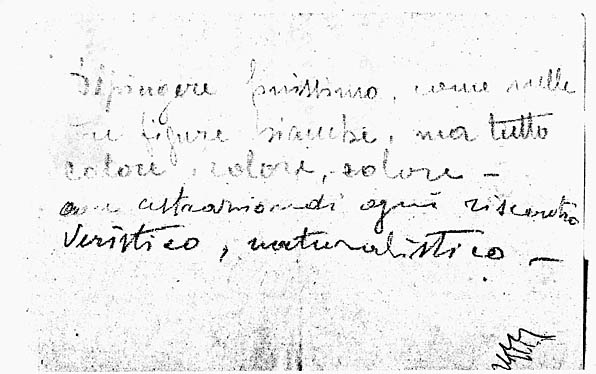 Dipingere finissimo, come nelle
tre figure bianche, ma tutto
colore, colore, colore –
con astrazione di ogni riscontro
Veristico, naturalistico –